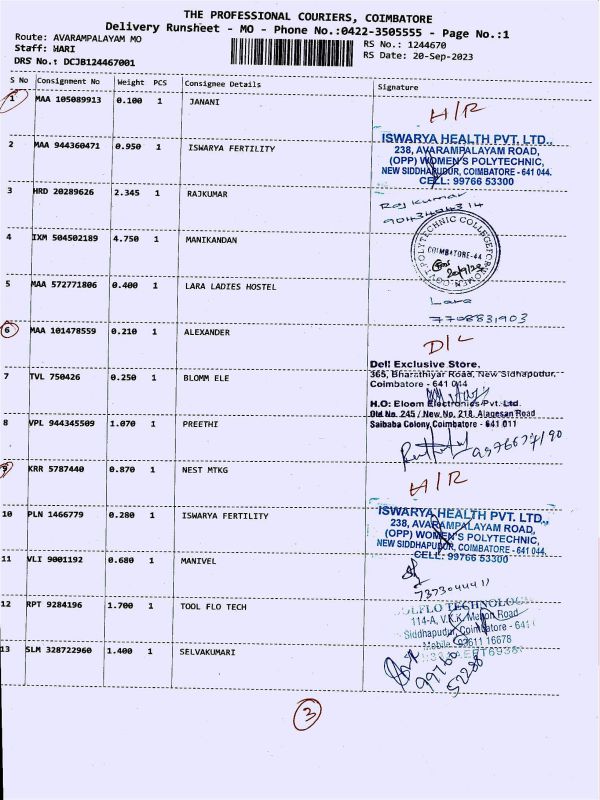 THE PROFESSIONAL COURIERS, COIMBATORE
Delivery Runsheet - MO - Phone No.:0422-3505555 - Page No.:1
Route: AVARAMPALAYAM MO
RS No.: 1244670
Staff: HARI
RS Date: 20-Sep-2023
DRS No.: DCJB124467001
S No Consignment No Weight PCS Consignee Details Signature
1 MAA 105089913 0.100 1 JANANI
H/R
2 MAA 944360471 0.950 1 ISWARYA FERTILITY
ISWARYA HEALTH PVT. LTD.,
238, AVARAMPALAYAM ROAD,
(OPP) WOMEN'S POLYTECHNIC,
NEW SIDDHAPUDUR, COIMBATORE - 641 044.
CELL: 99766 53300
3 HRD 20289626 2.345 1 RAJKUMAR
Rajkumar
9043404314
4 IXM 504502189 4.750 1 MANIKANDAN
COIMBATORE-44
20/9/23
5 MAA 572771806 0.400 1 LARA LADIES HOSTEL
Lara
7708831903
6 MAA 101478559 0.210 1 ALEXANDER
D/L
7 TVL 750426 0.250 1 BLOMM ELE
Dell Exclusive Store,
365, Bharathiyar Road, New Sidhapudur,
Coimbatore - 641 044
H.O: Eloom Electronics Pvt. Ltd.
Old No. 245 / New No. 218, Alagesan Road
Saibaba Colony, Coimbatore - 641 011
8 VPL 944345509 1.070 1 PREETHI
9 KRR 5787440 0.870 1 NEST MTKG
H/R
10 PLN 1466779 0.280 1 ISWARYA FERTILITY
ISWARYA HEALTH PVT. LTD.,
238, AVARAMPALAYAM ROAD,
(OPP) WOMEN'S POLYTECHNIC,
NEW SIDDHAPUDUR, COIMBATORE - 641 044.
CELL: 99766 53300
11 VLI 9001192 0.680 1 MANIVEL
7373044411
12 RPT 9284196 1.700 1 TOOL FLO TECH
114-A, V.K.K. Menon Road
Siddhapudur, Coimbatore - 641
13 SLM 328722960 1.400 1 SELVAKUMARI
99760
52288
3